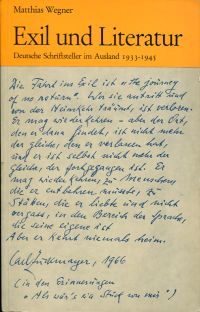 Matthias Wegner
Exil und Literatur
Deutsche Schriftsteller im Ausland 1933-1945
Die Fahrt ins Exil ist „the journey
of no return". Wer sie antritt und
von der Heimkehr träumt, ist verloren.
Er mag wiederkehren – aber der Ort,
den er dann findet, ist nicht mehr
der gleiche, den er verlassen hat,
und er ist selbst nicht mehr der
gleiche, der fortgegangen ist. Er
mag wiederkehren, zu Menschen,
die er entbehren musste, zu
Stätten, die er liebte und nicht
vergass, in den Bereich der Sprache,
die seine eigene ist.
Aber er kehrt niemals heim.
Carl Zuckmayer, 1966
(in den Erinnerungen
„Als wär's ein Stück von mir")